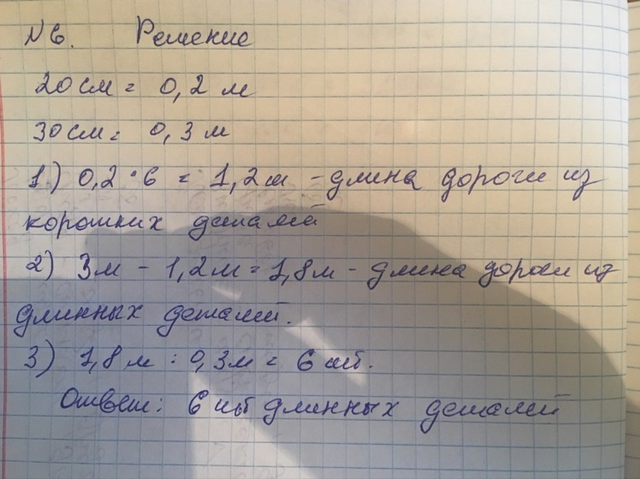 N6. Решение
20 см = 0,2 м
30 см = 0,3 м
1.) 0,2 · 6 = 1,2 м - длина дороги из
коротких деталей
2) 3м - 1,2 м = 1,8 м - длина дороги из
длинных деталей.
3) 1,8 м : 0,3 м = 6 шт.
Ответ: 6 шт длинных деталей